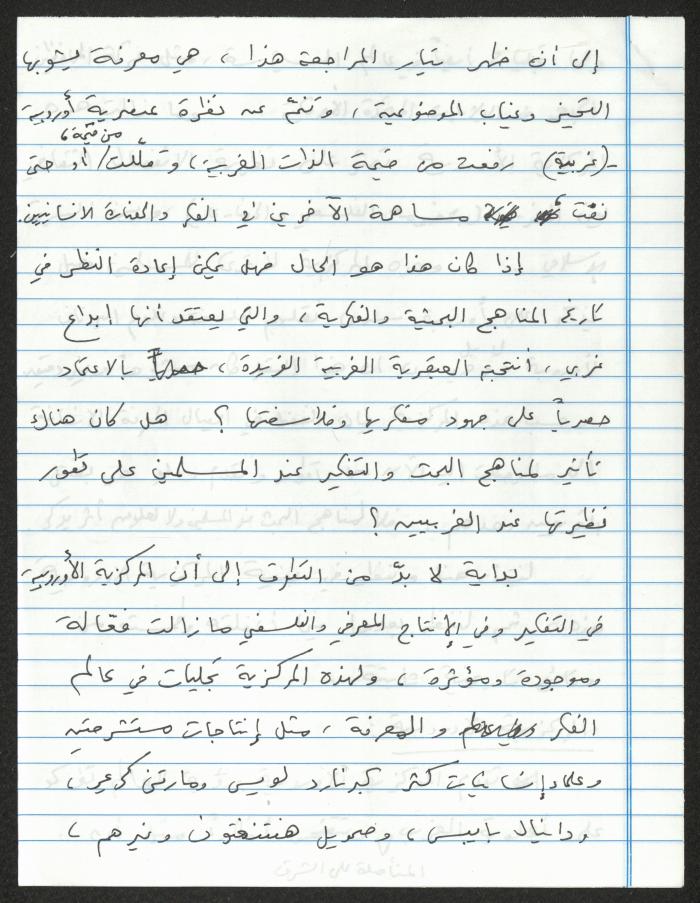 إلى أن ظهر تيار المراجعة هذا، هي معرفة يشوبها
التحيز وغياب الموضوعية، وتنمّ عن نظرة عنصرية أوروبية
من قيمة،
-(غربية) رفعت من قيمة الذات الغربية، وقلّلت/ أو حتى
نفت مساهمة الآخرين في الفكر والحضارة الانسانيين.
إذا كان هذا هو الحال فهل يمكن إعادة النظر في
تاريخ المناهج البحثية والفكرية، والتي يعتقد أنها ابداع
غربي، أنتجته العبقرية الغربية الفريدة، بالاعتماد
حصرياً على جهود مفكريها وفلاسفتها؟ هل كان هناك
تأثير لمناهج البحث والتفكير عند المسلمين على تطور
نظيرتها عند الغربيين؟
بداية لا بدّ من التطرق إلى أن المركزية الأوروبية
في التفكير وفي الإنتاج المعرفي والفلسفي ما زالت فعّالة
وموجودة ومؤثرة، ولهذه المركزية تجليات في عالم
الفكر و المعرفة، مثل إنتاجات مستشرقين
وعلماء إنسانيات كثر كبرنارد لويس ومارتن كريمر،
ودانيال بايبس، وصمويل هنتنغتون وغيرهم،